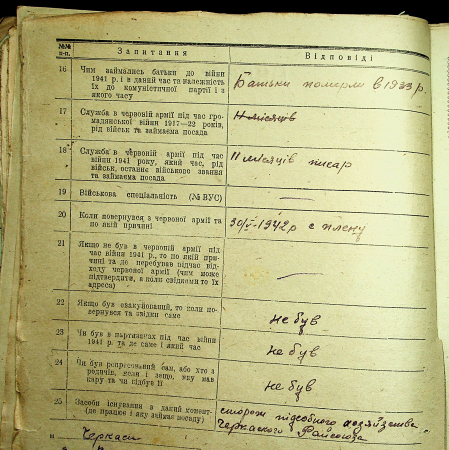 №№ п-п.
Запитання
Відповіді
16
Чим займались батьки до війни
1941 р. і в даний час та належність
їх до комуністичної партії і з
якого часу
Батьки померли в 1933 р.
17
Служба в червоній армії під час гро-
мадянської війни 1917—22 років,
рід військ та займаєма посада
11 місяців
18
Служба в червоній армії під час
війни 1941 року, який час, рід
військ, останнє військового звання
та займаєма посада
11 місяців писар
19
Військова спеціальність (№ ВУС)
—
20
Коли повернувся з червоної армії та
по якій причині
30/V-1942 р с плену
21
Якщо не був в червоній армії під
час війни 1941 р., то по якій при-
чині та де перебував підчас від-
ходу червоної армії (чим може
підтвердити, а коли свідками то їх
адреса)
—
22
Якщо був евакуйований, то коли по-
вернувся та звідки саме
не був
23
Чи був в партизанах під час війни
1941 р. та де саме і який час
не був
24
Чи був репресований сам, або хто з
родичів, коли і защо, яку мав
кару та чи підбув її
не був
25
Засоби існування в даний момент
(де працює і яку займає посаду)
сторож підсобного хозяйства
Черкаского Райсоюза
Черкаси